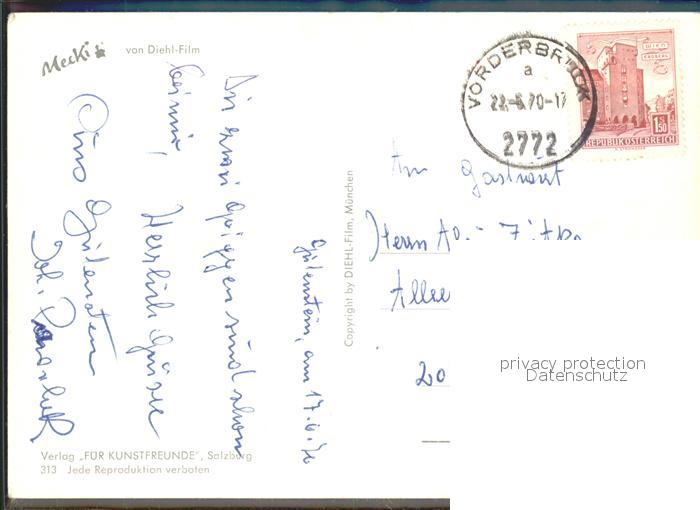 Mecki von Diehl-Film
VORDERBRUCK
a
22.-6.70-17
2772
WIEN
ERDBERG
1S50
REPUBLIK ÖSTERREICH
Gutenstein, am 17.6.70
Die zwei sind schon
Herzliche Grüße
aus Gutenstein
An Gastwirt
Herrn
20
Copyright by DIEHL-Film, München
Verlag „FÜR KUNSTFREUNDE", Salzburg
313 Jede Reproduktion verboten
privacy protection
Datenschutz